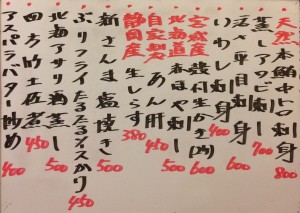 天然本鮪中トロ刺身 800
蒸しアワビ刺し 700
活〆平目刺身 600
いわし刺身 400
宮城産殻付生かき 600
北海道 刺し 500
自家製あん肝 450
静岡産生しらす 380
新さんま塩焼き 500
ぶりフライたるたる 450
北海アサリ酒蒸し 500
四方竹土佐煮 450
アスパラバター炒め 400